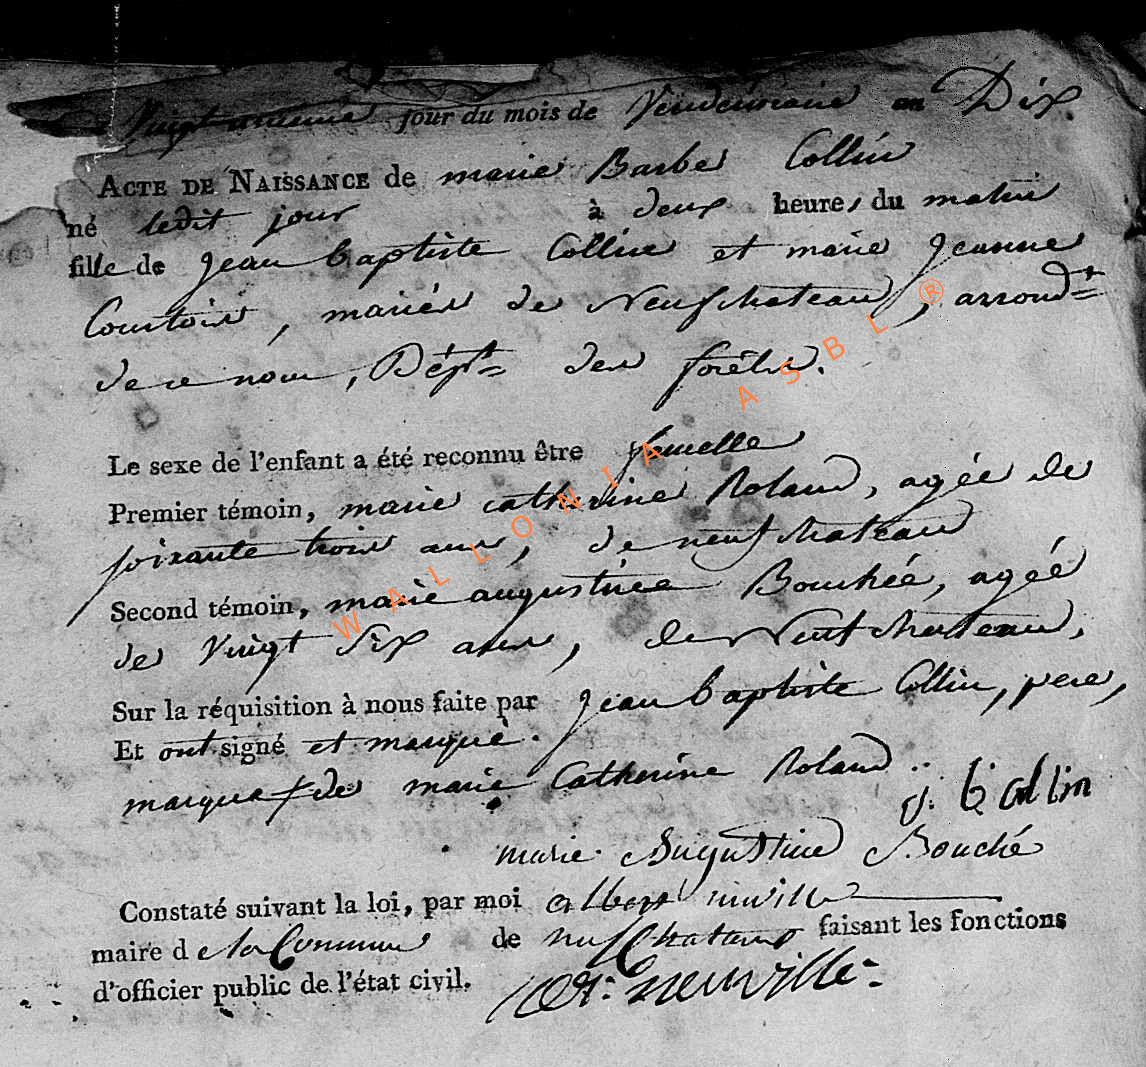 jour du mois de Vendémiaire an Dix
ACTE DE NAISSANCE de marie Barbe Collin
né ledit jour à deux heures du matin
fille de Jean baptiste Collin et marie Jeanne
Courtois, mariés de Neufchateau, arrondt
de ce nom, Dépt des forêts.
Le sexe de l'enfant a été reconnu être femelle
Premier témoin, marie catherine Roland, agée de
soixante trois ans, de neufchateau
Second témoin, marie augustine Bouchée, agée
de Vingt Six ans, de Neufchateau,
Sur la réquisition à nous faite par Jean baptiste Collin, pere,
Et ont signé et marqué.
marque + de marie Catherine Roland
j. b Collin
marie Augustine Bouché
Constaté suivant la loi, par moi albert neuville
maire de la Commune de neufchateau faisant les fonctions
d'officier public de l'état civil.
neuville
WALLONIA ASBL ®